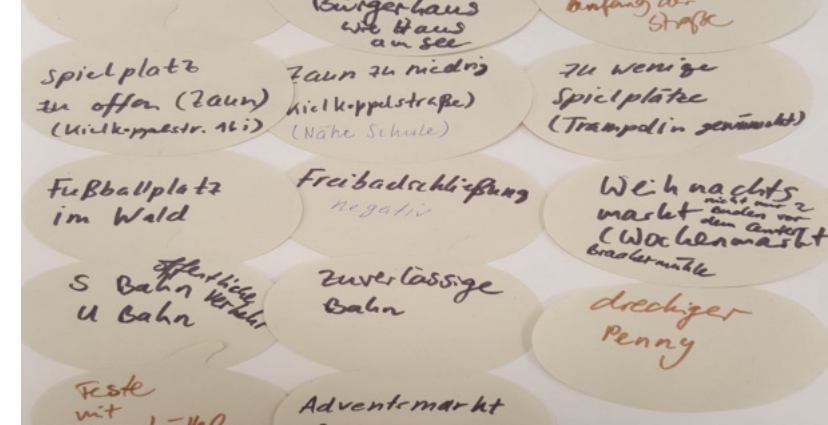 Bürgerhaus
wie Haus
am See
anfang der
Straße
Spielplatz
zu offen (Zaun)
(Kielkoppelstr. 16i)
Zaun zu niedrig
Kielkoppelstraße)
(Nähe Schule)
zu wenige
Spielplätze
(Trampolin gewünscht)
Fußballplatz
im Wald
Freibadschließung
negativ
Weihnachts
markt nicht nur 2
Buden vor
dem Center
(Wochenmarkt
Braaker mühle
S Bahn öffentliche
U Bahn Verkehr
Zuverlässige
Bahn
dreckiger
Penny
Feste
mit
Adventsmarkt